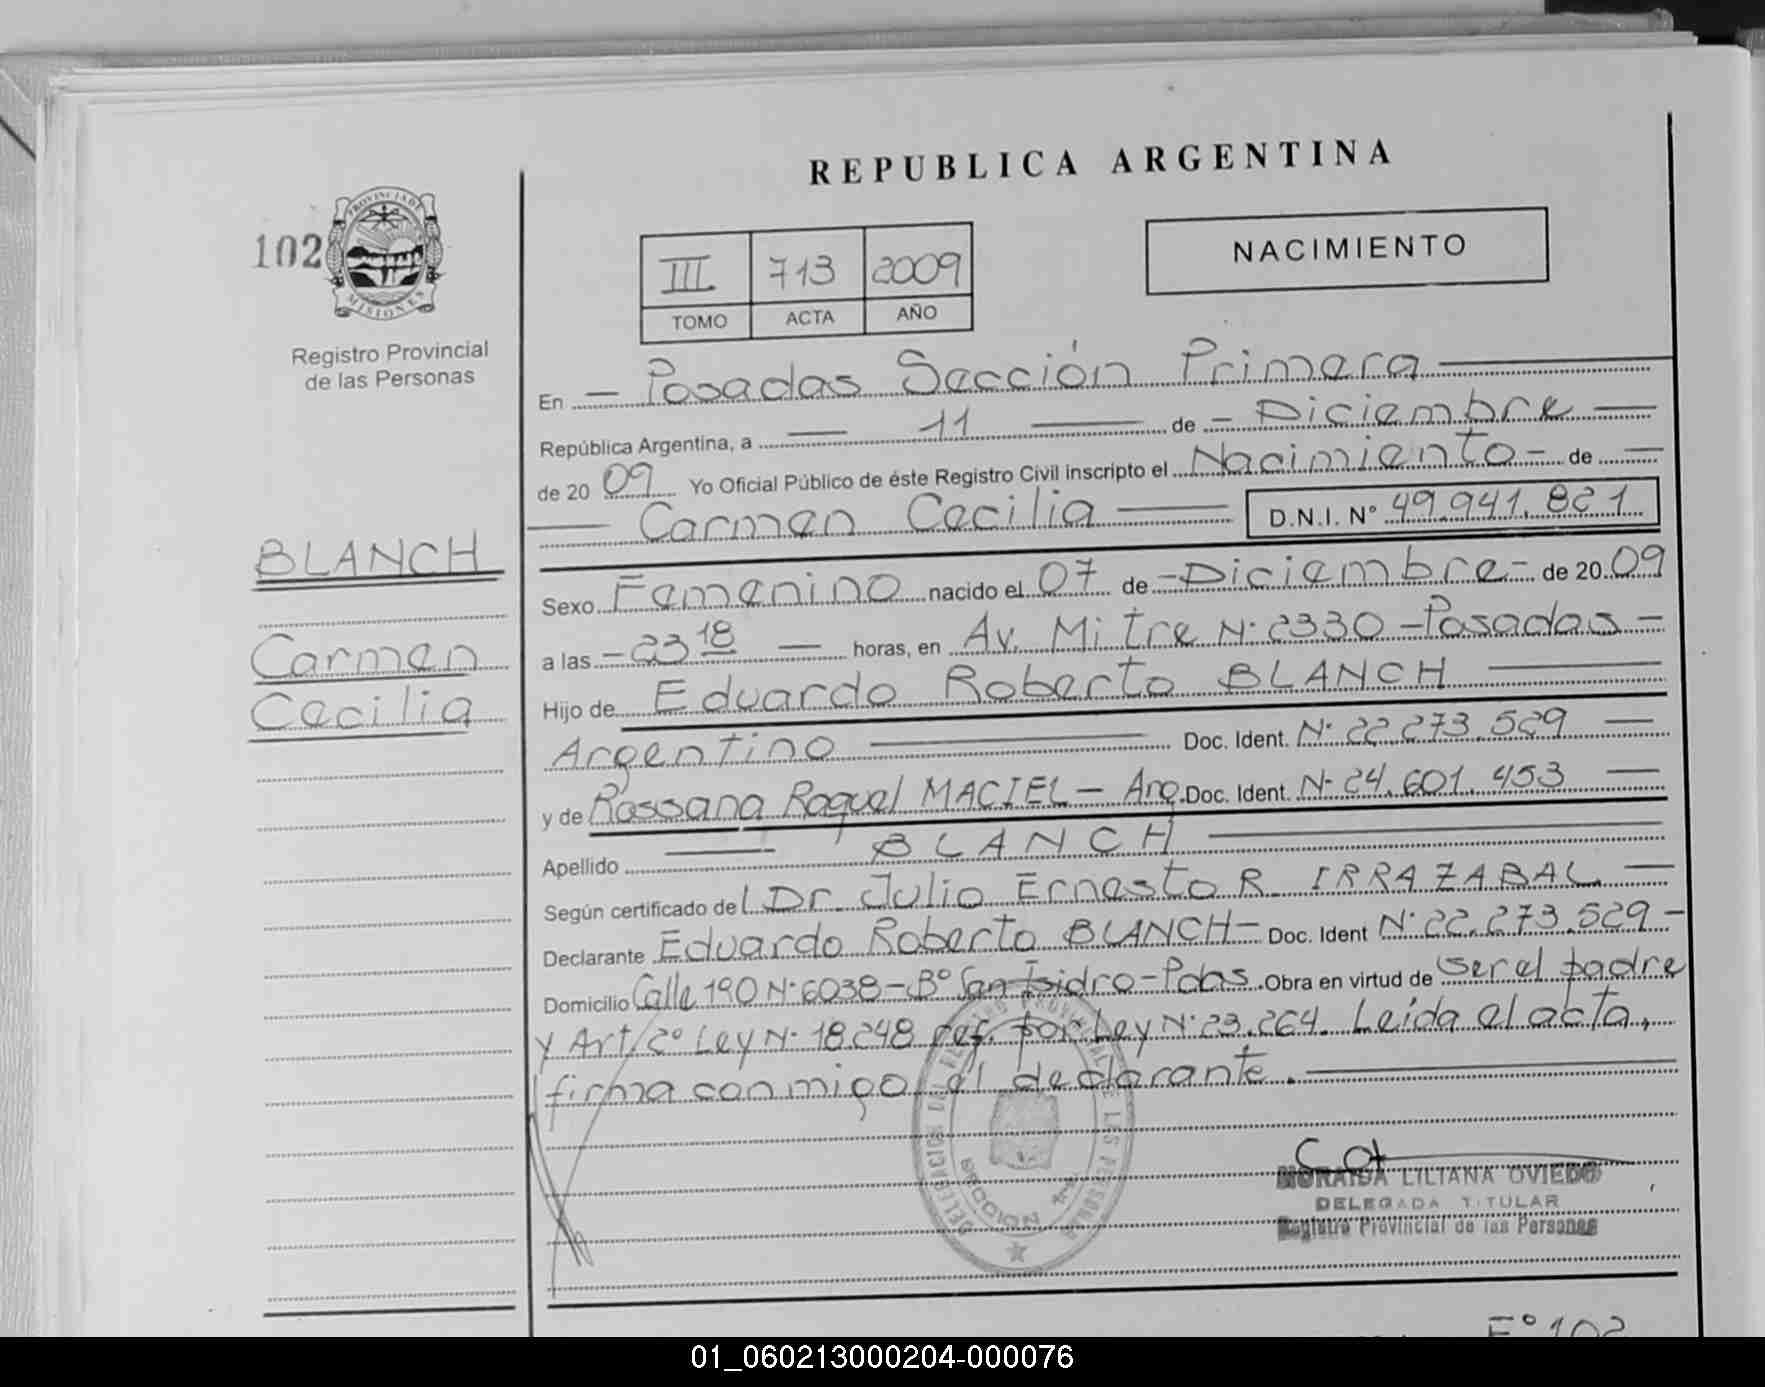 REPUBLICA ARGENTINA
102
PROVINCIA DE
MISIONES
Registro Provincial
de las Personas
III 713 2009
TOMO ACTA AÑO
NACIMIENTO
En - Posadas Sección Primera
República Argentina, a 11 de - Diciembre
de 20 09 Yo Oficial Público de éste Registro Civil inscripto el Nacimiento - de
Carmen Cecilia D.N.I. N° 49.941.821
BLANCH
Carmen
Cecilia
Sexo Femenino nacido el 07 de - Diciembre - de 20 09
a las - 23 18 horas, en Av. Mitre N° 2330 - Posadas -
Hijo de Eduardo Roberto BLANCH
Argentino Doc. Ident. N° 22.273.529
y de Rossana Raquel MACIEL - Arg. Doc. Ident. N° 24.601.453
Apellido BLANCH
Según certificado del Dr. Julio Ernesto R. IRRAZABAL
Declarante Eduardo Roberto BLANCH - Doc. Ident N° 22.273.529 -
Domicilio Calle 190 N° 6038 - B° San Isidro - Pdas. Obra en virtud de ser el padre
y Art/2° Ley N° 18.248 ref. por Ley N° 23.264. Leída el acta,
firma conmigo el declarante.
MORAIDA LILIANA OVIEDO
DELEGADA TITULAR
Registro Provincial de las Personas
F° 102
01_060213000204-000076